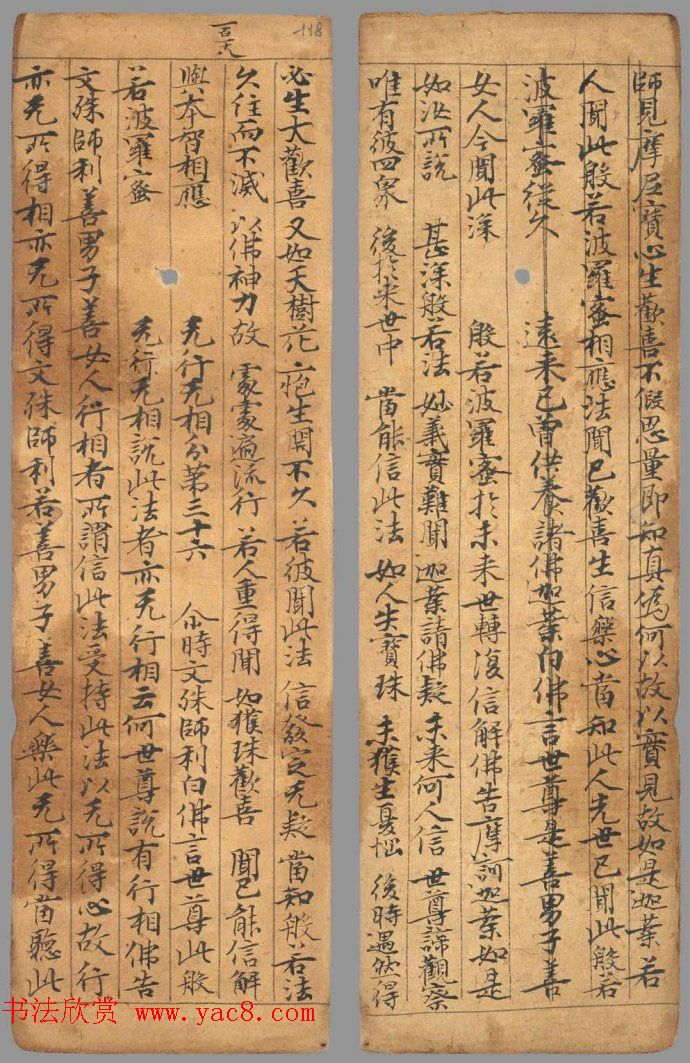 師見摩尼寶心生歡喜不假思量即知真偽何以故以寶見故如是迦葉若
人聞此般若波羅蜜相應法聞已歡喜生信樂心當知此人先世已聞此般若
波羅蜜從久遠來已曾供養諸佛迦葉白佛言世尊是善男子善
女人今聞此深般若波羅蜜於未來世轉復信解佛告摩訶迦葉如是
如汝所說 甚深般若法 妙義實難聞 迦葉請佛疑 未來何人信 世尊諦觀察
唯有彼四眾 後於末世中 當能信此法 如人失寶珠 未獲生憂惱 後時遇然得
118
一百一十八
必生大歡喜 又如天樹花 皰生開不久 若彼聞此法 信發定无疑 當知般若法
久住而不滅 以佛神力故 處處遍流行 若人重得聞 如獲珠歡喜 聞已能信解
與本智相應 无行无相分第三十六 尒時文殊師利白佛言世尊此般
若波羅蜜无行无相說此法者亦无行相云何世尊說有行相佛告
文殊師利善男子善女人行相者所謂信此法受持此法以无所得心故行
亦无所得相亦无所得文殊師利若善男子善女人樂此无所得當聽此
书法欣赏 www.yac8.com